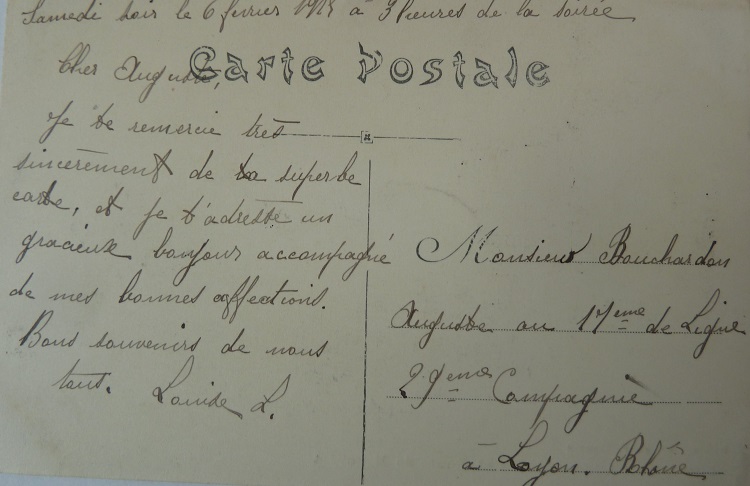 Samedi soir le 6 fevrier 1915 à 3 heures de la soirée
Carte Postale
Cher Auguste,
Je te remercie très
sincèrement de ta superbe
carte, et je t'adresse un
gracieux bonjour accompagné
de mes bonnes affections.
Bons souvenirs de nous
tous. Louise L.
Monsieur Bouchardon
Auguste au 17eme de Ligne
29eme Compagnie
à Lyon. Rhône